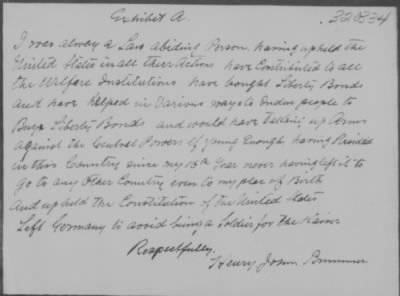 Exhibit A.
320334
I was always a Law abiding Person having upheld the
United States in all their Action have Contributed to all
the Welfare Institutions have bought Liberty Bonds
and have helped in Various ways to Induce people to
Buy Liberty Bonds and would have taking up Arms
against the Central Powers if young Enough having Resided
in this Country since my 18th Year never having left it to
go to any Other Country even to my place of Birth
And upheld the Constitution of the United States
Left Germany to avoid being a Soldier for the Kaiser
Respectfully
Henry John